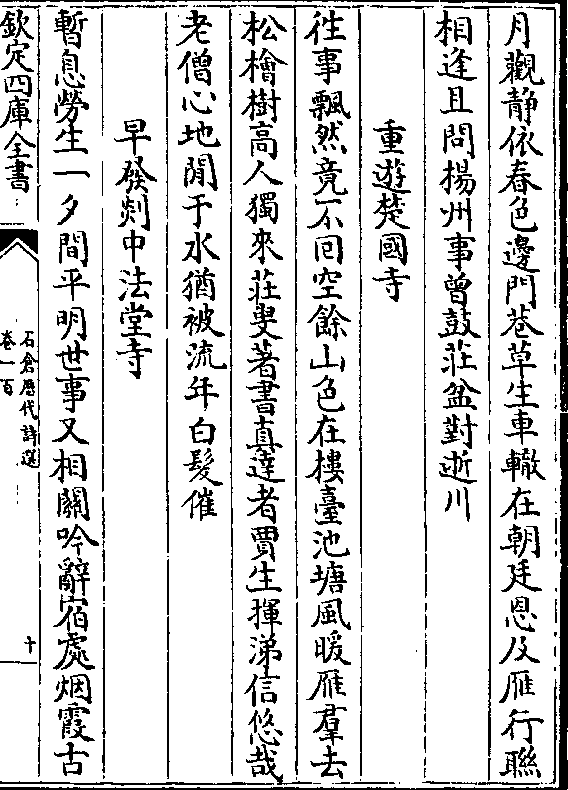 月觀静依春色邊門巷草生車轍在朝廷恩及雁行聯
相逢且問揚州事曾鼓莊盆對逝川
重遊楚國寺
徃事飄然竟不囘空餘山色在樓臺池塘風暖雁羣去
松檜樹高人獨來莊叟著書真達者賈生揮涕信悠哉
老僧心地閒于水猶被流年白髮催
早發剡中法堂寺
暫息勞生一夕間平明世事又相關吟辭宿處烟霞古
欽定四庫全書
石倉歷代詩選
卷一百
十